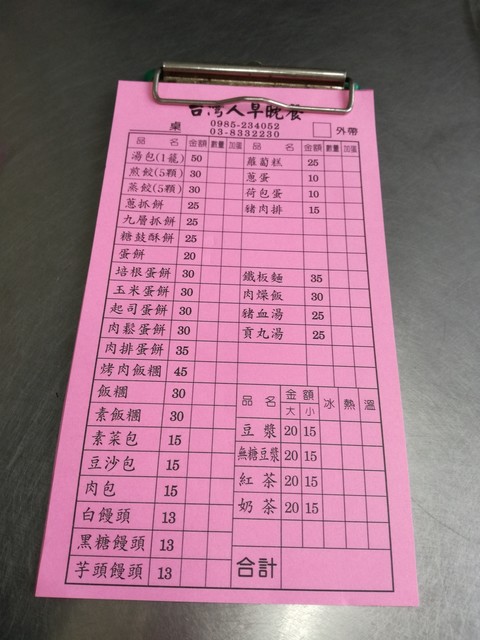 台灣人早晚餐
0985-234052
03-8332230
桌 外帶
品名 金額 數量 加蛋
湯包(1籠) 50
煎餃(5顆) 30
蒸餃(5顆) 30
蔥抓餅 25
九層抓餅 25
糖鼓酥餅 25
蛋餅 20
培根蛋餅 30
玉米蛋餅 30
起司蛋餅 30
肉鬆蛋餅 30
肉排蛋餅 35
烤肉飯糰 45
飯糰 30
素飯糰 30
素菜包 15
豆沙包 15
肉包 15
白饅頭 13
黑糖饅頭 13
芋頭饅頭 13
品名 金額 數量 加蛋
蘿蔔糕 25
蔥蛋 10
荷包蛋 10
豬肉排 15
鐵板麵 35
肉燥飯 30
豬血湯 25
貢丸湯 25
品名 金額 大 小 冰 熱 溫
豆漿 20 15
無糖豆漿 20 15
紅茶 20 15
奶茶 20 15
合計